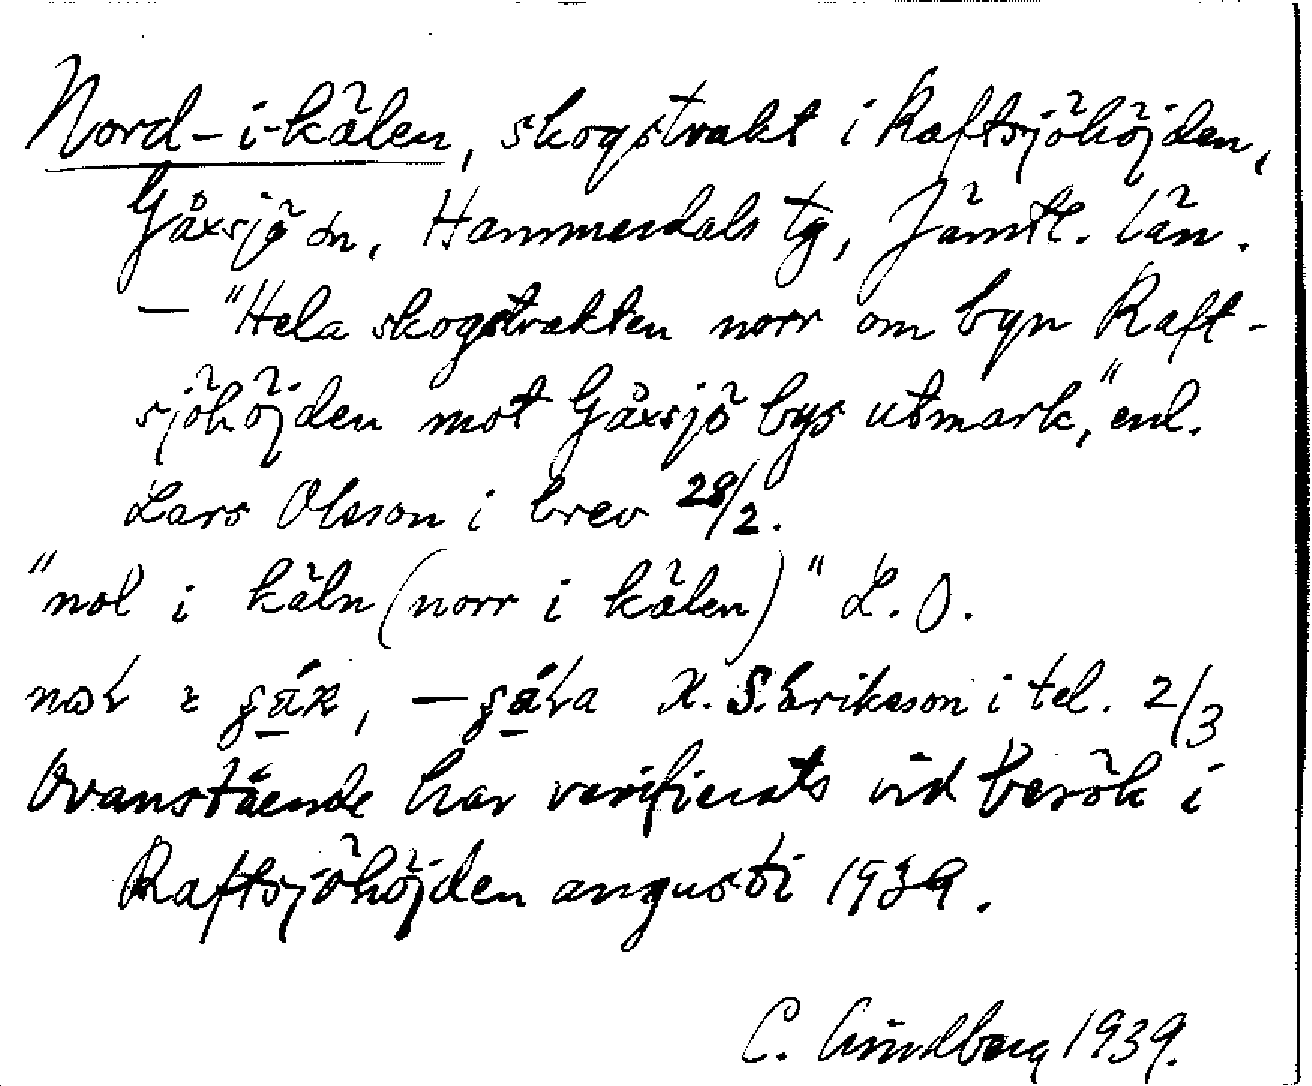 Nord-i-kälen, skogstrakt i Raftsjöhöjden,
Gåxsjö sn, Hammerdals tg, Jämtl. län.
— "Hela skogstrakten norr om byn Raft-
sjöhöjden mot Gåxsjö bys utmark," enl.
Lars Olsson i brev 28/2.
"nol i käln (norr i kälen)" L. O.
i tel. 2/3
Ovanstående har verifierats vid besök i
Raftsjöhöjden augusti 1939.
C. Lindberg 1939.